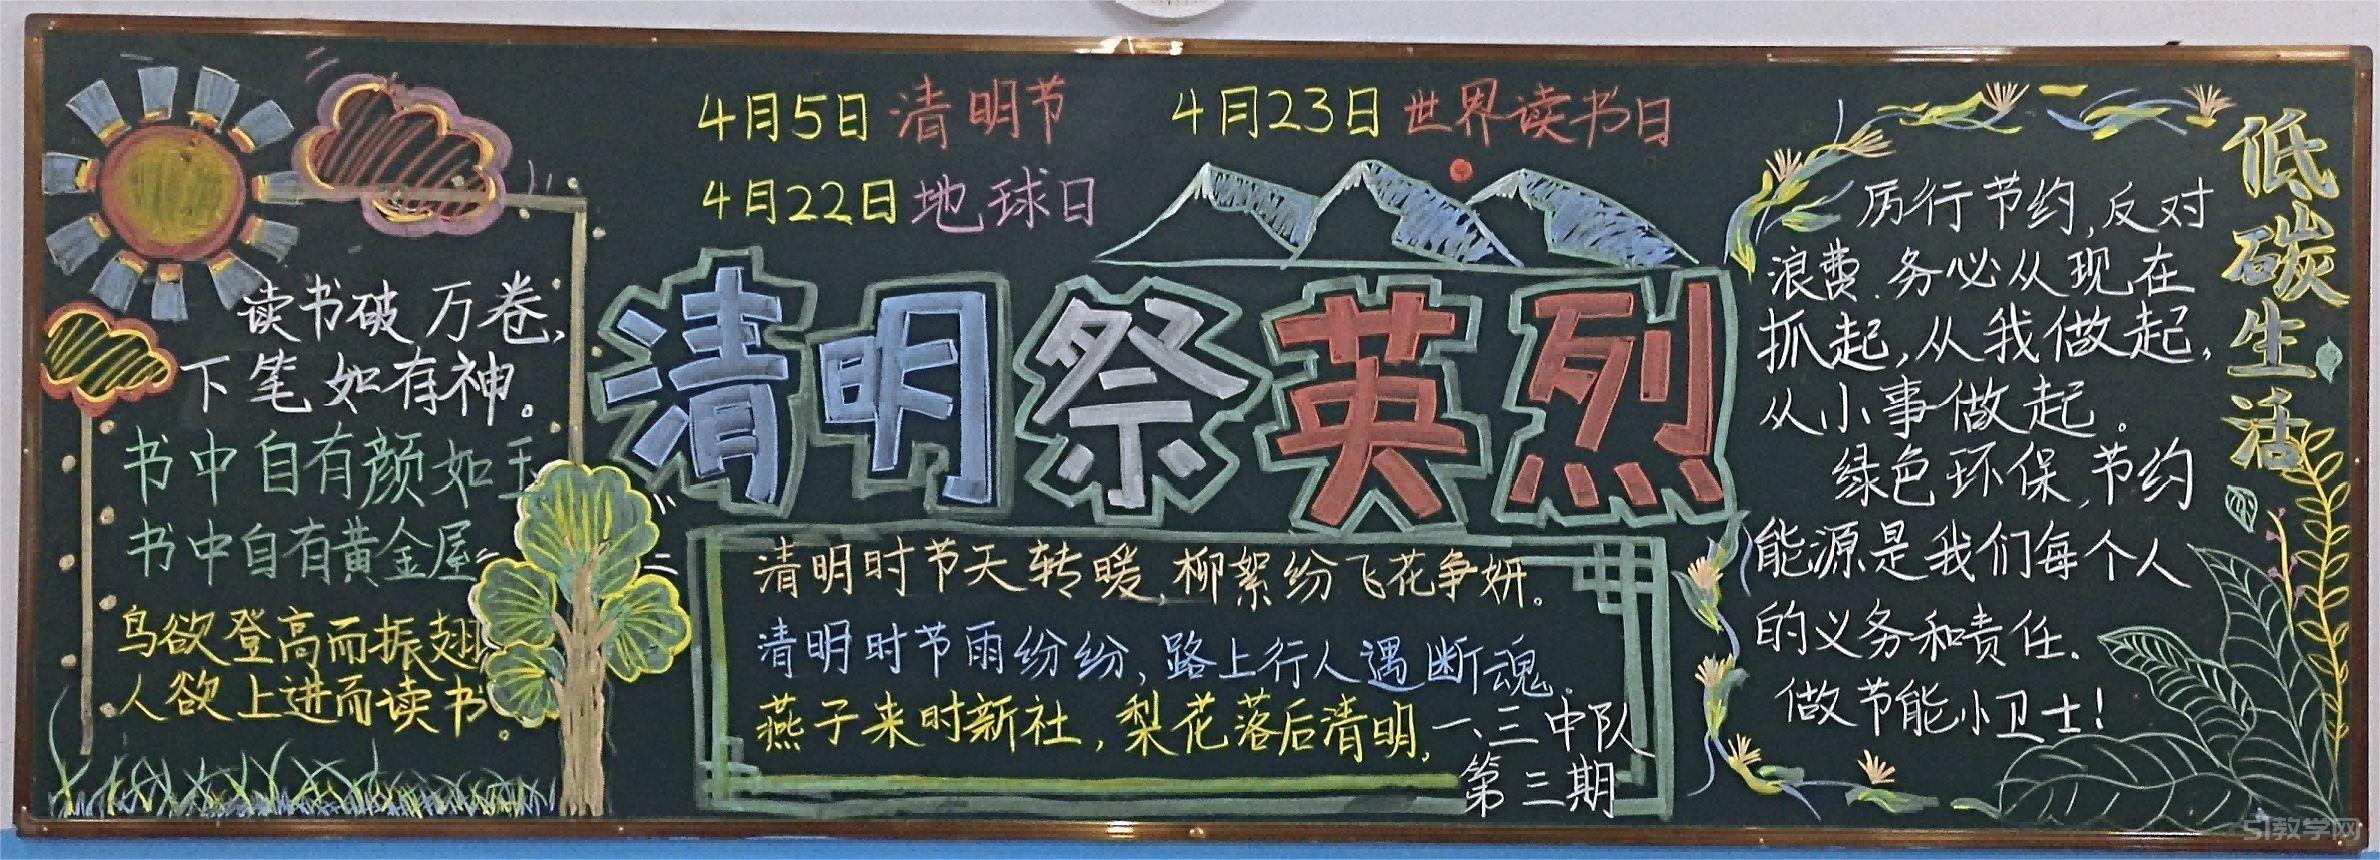 4月5日清明节
4月23日世界读书日
4月22日地球日
清明祭英烈
读书破万卷,
下笔如有神。
书中自有颜如玉
书中自有黄金屋
鸟欲登高而振翅
人欲上进而读书。
清明时节天转暖,柳絮纷飞花争妍。
清明时节雨纷纷,路上行人遇断魂.
燕子来时新社,梨花落后清明,
一、三中队
第三期
低碳生活
厉行节约,反对
浪费、务必从现在
抓起,从我做起,
从小事做起。
绿色环保,节约
能源是我们每个人
的义务和责任.
做节能小卫士!
51教学网